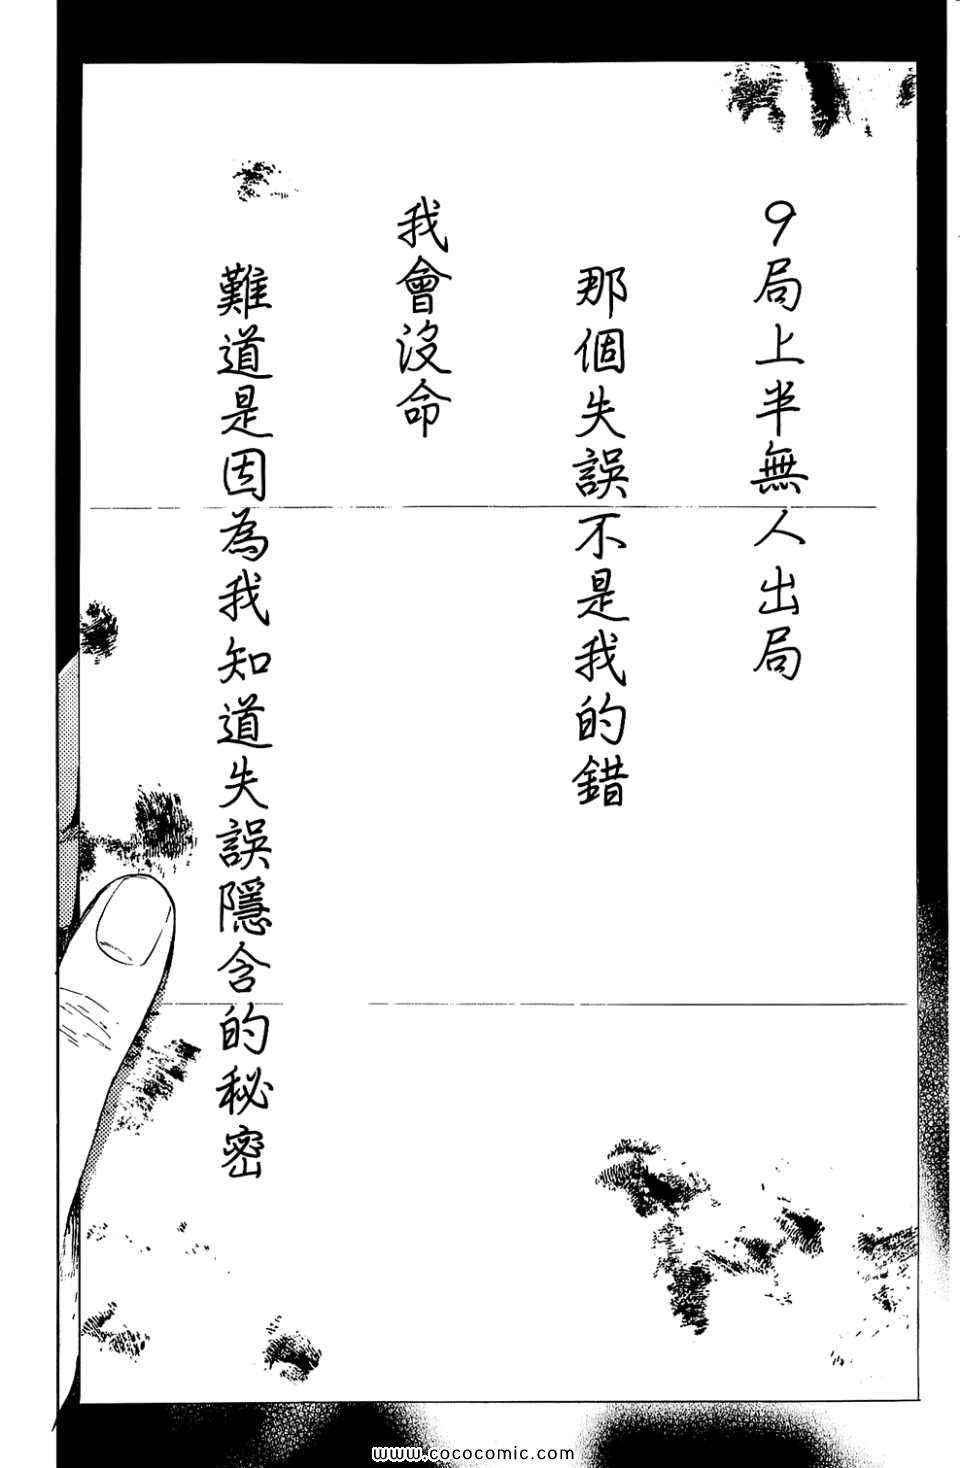 9局上半無人出局
那個失誤不是我的錯
我會沒命
難道是因為我知道失誤隱含的秘密
www.cococomic.com